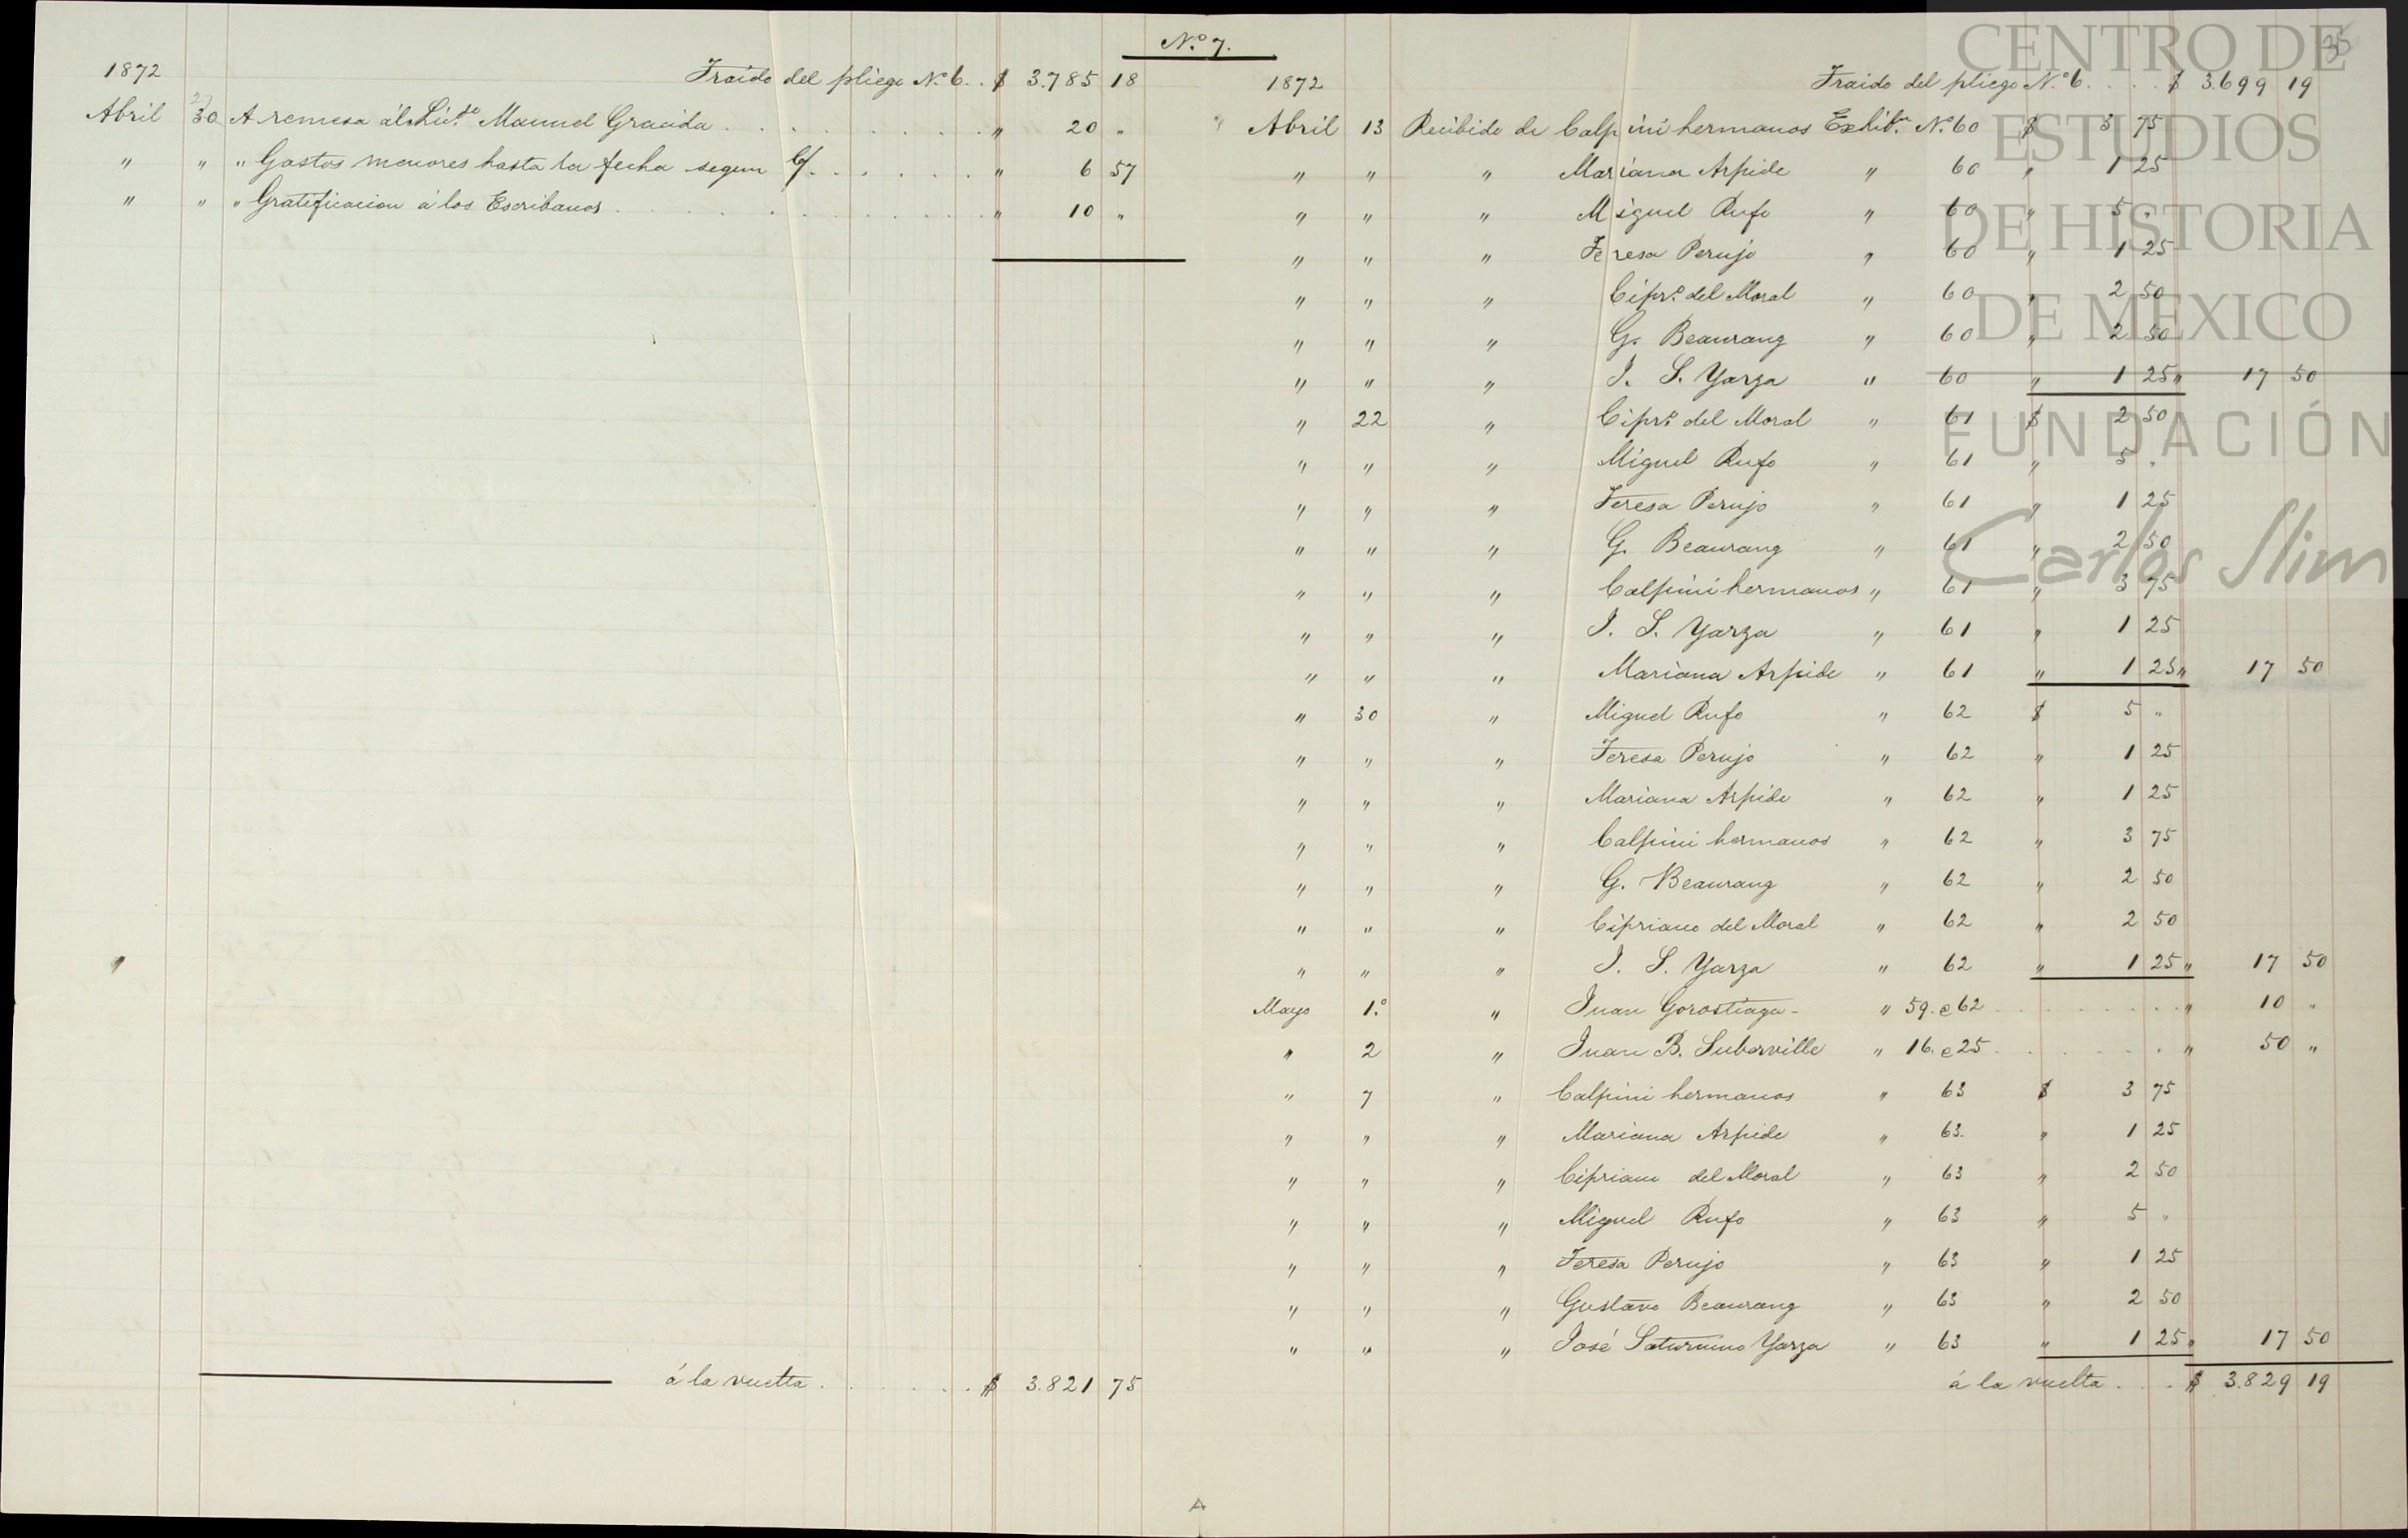 Nº 7.
1872
Traido del pliego Nº 6. . $ 3.785 18
Abril 30 A remesa al Licdo Manuel Gracida . . . . . . . . . " 20 "
" " " Gastos menores hasta la fecha segun C/. . . . . . . " 6 57
" " " Gratificacion á los Escribanos . . . . . . . . . . " 10 "
á la vuelta . . . . . . . $ 3.821 75
35
1872 Traido del pliego Nº 6. . . . $ 3.699 19
Abril 13 Recibido de Calpini hermanos Exhibn Nº 60 $ 3 75
" " " Mariana Arpide " 60 " 1 25
" " " Miguel Rufo " 60 " 5 "
" " " Teresa Perujo " 60 " 1 25
" " " Cipro del Moral " 60 " 2 50
" " " G. Beaurang " 60 " 2 50
" " " J. S. Yarza " 60 " 1 25 " 17 50
" 22 " Cipro del Moral " 61 $ 2 50
" " " Miguel Rufo " 61 " 5 "
" " " Teresa Perujo " 61 " 1 25
" " " G. Beaurang " 61 " 2 50
" " " Calpini hermanos " 61 " 3 75
" " " J. S. Yarza " 61 " 1 25
" " " Mariana Arpide " 61 " 1 25 " 17 50
" 30 " Miguel Rufo " 62 $ 5 "
" " " Teresa Perujo " 62 " 1 25
" " " Mariana Arpide " 62 " 1 25
" " " Calpini hermanos " 62 " 3 75
" " " G. Beaurang " 62 " 2 50
" " " Cipriano del Moral " 62 " 2 50
" " " J. S. Yarza " 62 " 1 25 " 17 50
Mayo 1.º " Juan Gorostiaga - " 59. e 62 . . . . . . . . . " 10 "
" 2 " Juan B. Suberville " 16. e 25 . . . . . . . " 50 "
" 7 " Calpini hermanos " 63 $ 3 75
" " " Mariana Arpide " 63. " 1 25
" " " Cipriano del Moral " 63 " 2 50
" " " Miguel Rufo " 63 " 5 "
" " " Teresa Perujo " 63 " 1 25
" " " Gustavo Beaurang " 63 " 2 50
" " " José Saturnino Yarza " 63 " 1 25 " 17 50
á la vuelta . . . $ 3.829 19
CENTRO DE
ESTUDIOS
DE HISTORIA
DE MEXICO
FUNDACIÓN
Carlos Slim